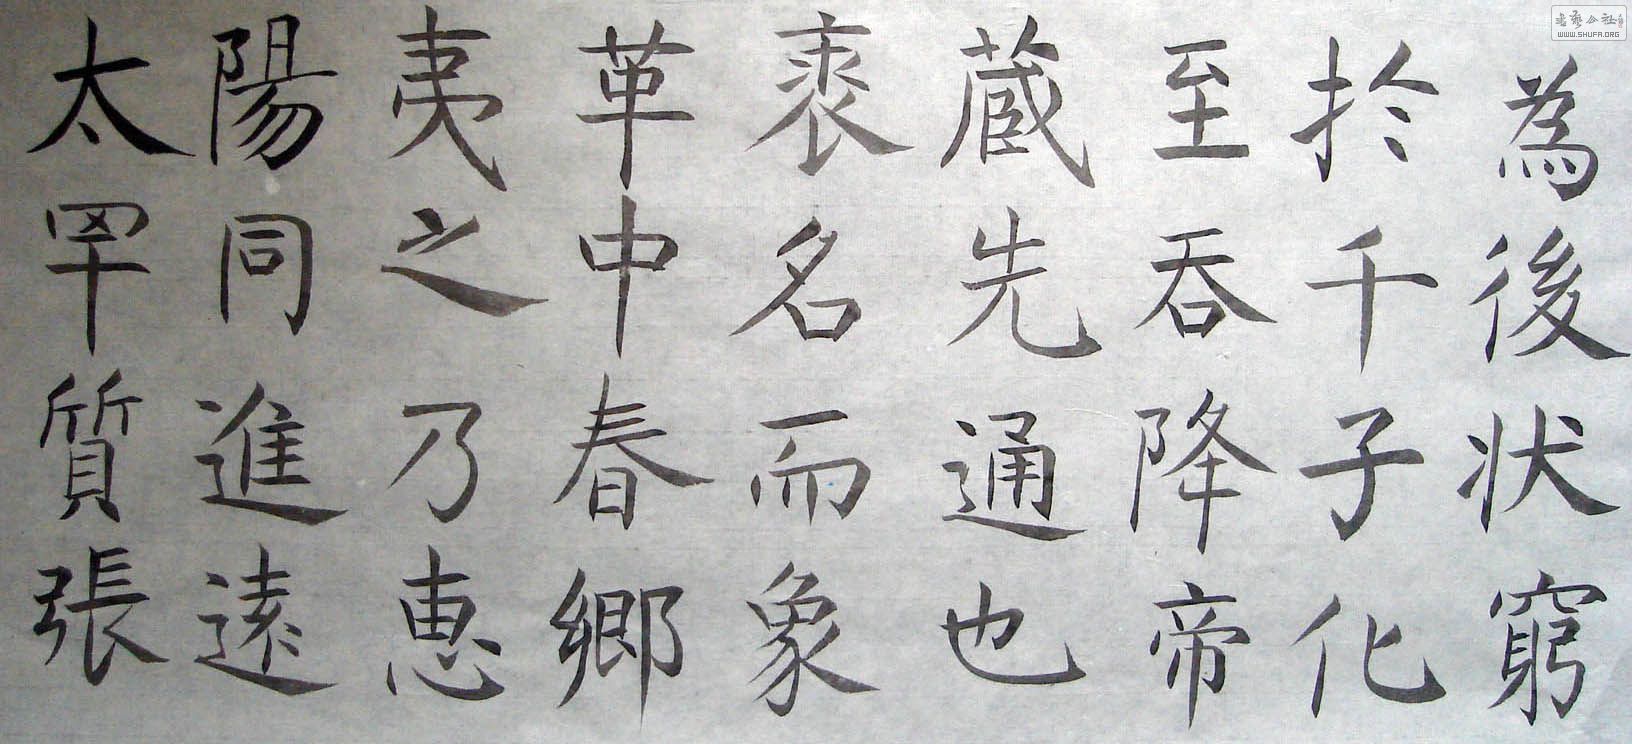 為後状窮
於千子化
至吞降帝
蔵先通也
裘名而象
革中春鄉
夷之乃恵
陽同進遠
太罕質張
WWW.SHUFA.ORG